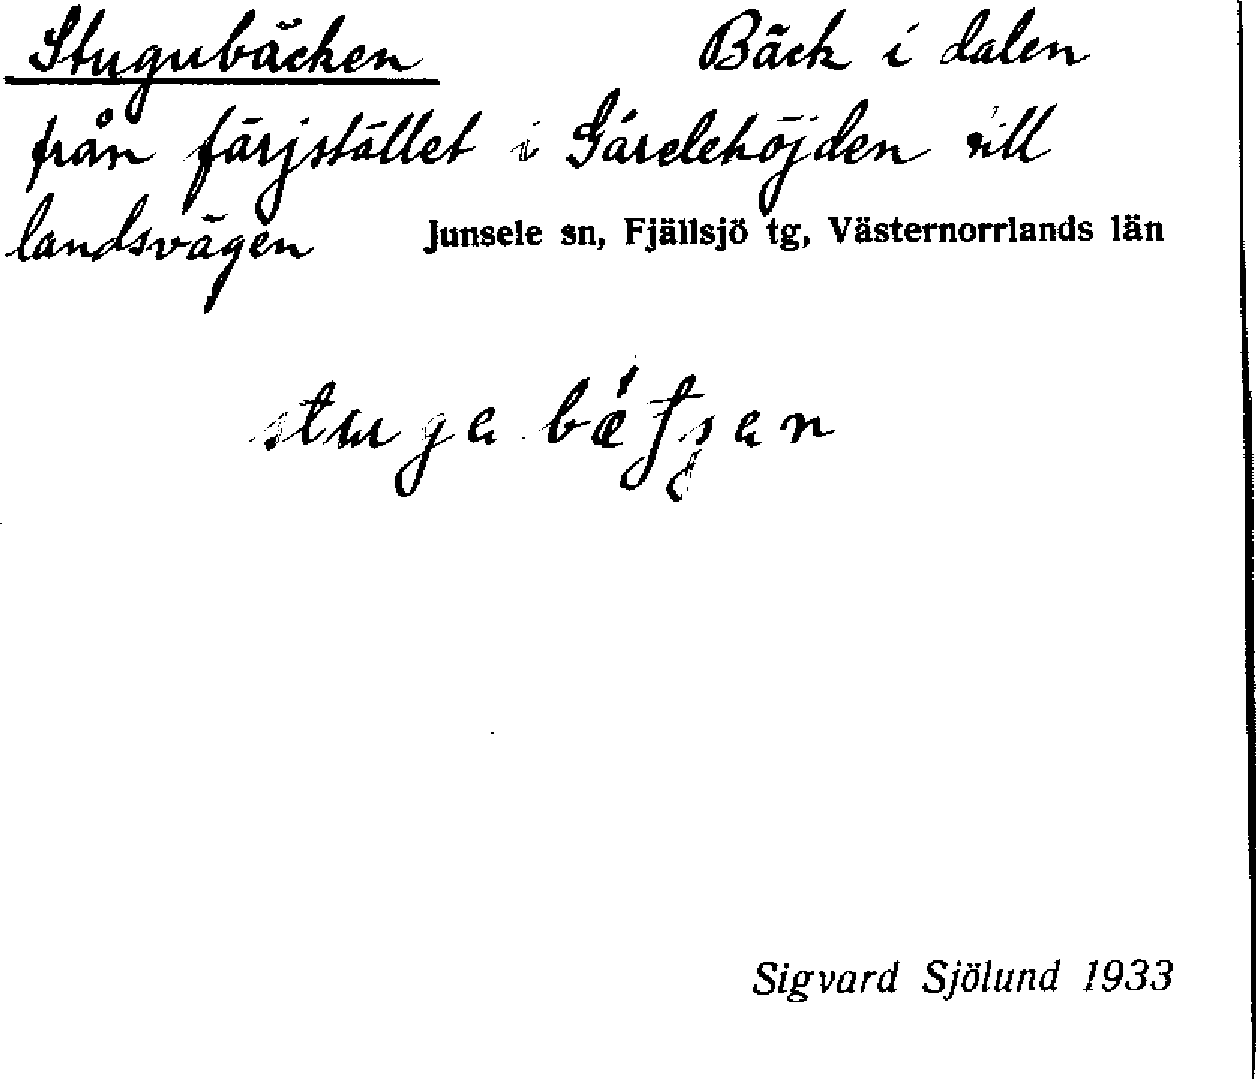 Stugubäcken Bäck i dalen
från färjstället i Gårelehöjden till
landsvägen Junsele sn, Fjällsjö tg, Västernorrlands län
Sigvard Sjölund 1933